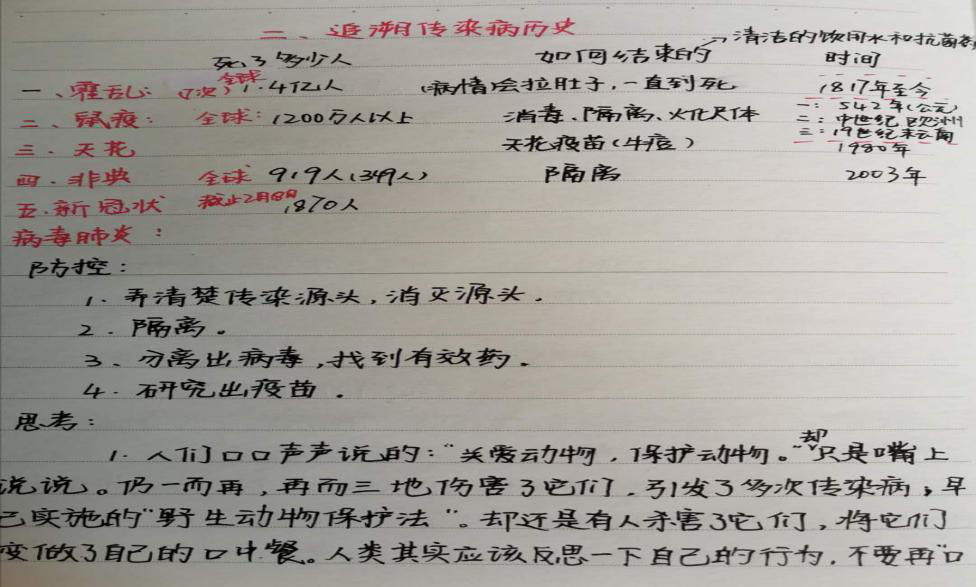 二、追溯传染病历史
→清洁的饮用水和抗菌药
死了多少人 如何结束的 时间
一、霍乱: (7次) 全球 1.4亿人 (病情会拉肚子,一直到死 1817年至今
二、鼠疫: 全球: 1200万人以上 消毒、隔离、火化尸体 一: 542年(公元)
二: 中世纪欧洲
三: 19世纪末云南
三. 天花 天花疫苗(牛痘) 1980年
四. 非典 全球 919人(349人) 隔离 2003年
五.新冠状 截止2月8日 1870人
病毒肺炎:
防控:
1. 弄清楚传染源头,消灭源头.
2. 隔离。
3、分离出病毒,找到有效药。
4. 研究出疫苗.
思考:
1. 人们口口声声说的:“关爱动物,保护动物。”却只是嘴上
说说。仍一而再,再而三地伤害了它们,引发了多次传染病;早
已实施的“野生动物保护法”。却还是有人杀害了它们,将它们
变做了自己的口中餐。人类其实应该反思一下自己的行为,不要再“口